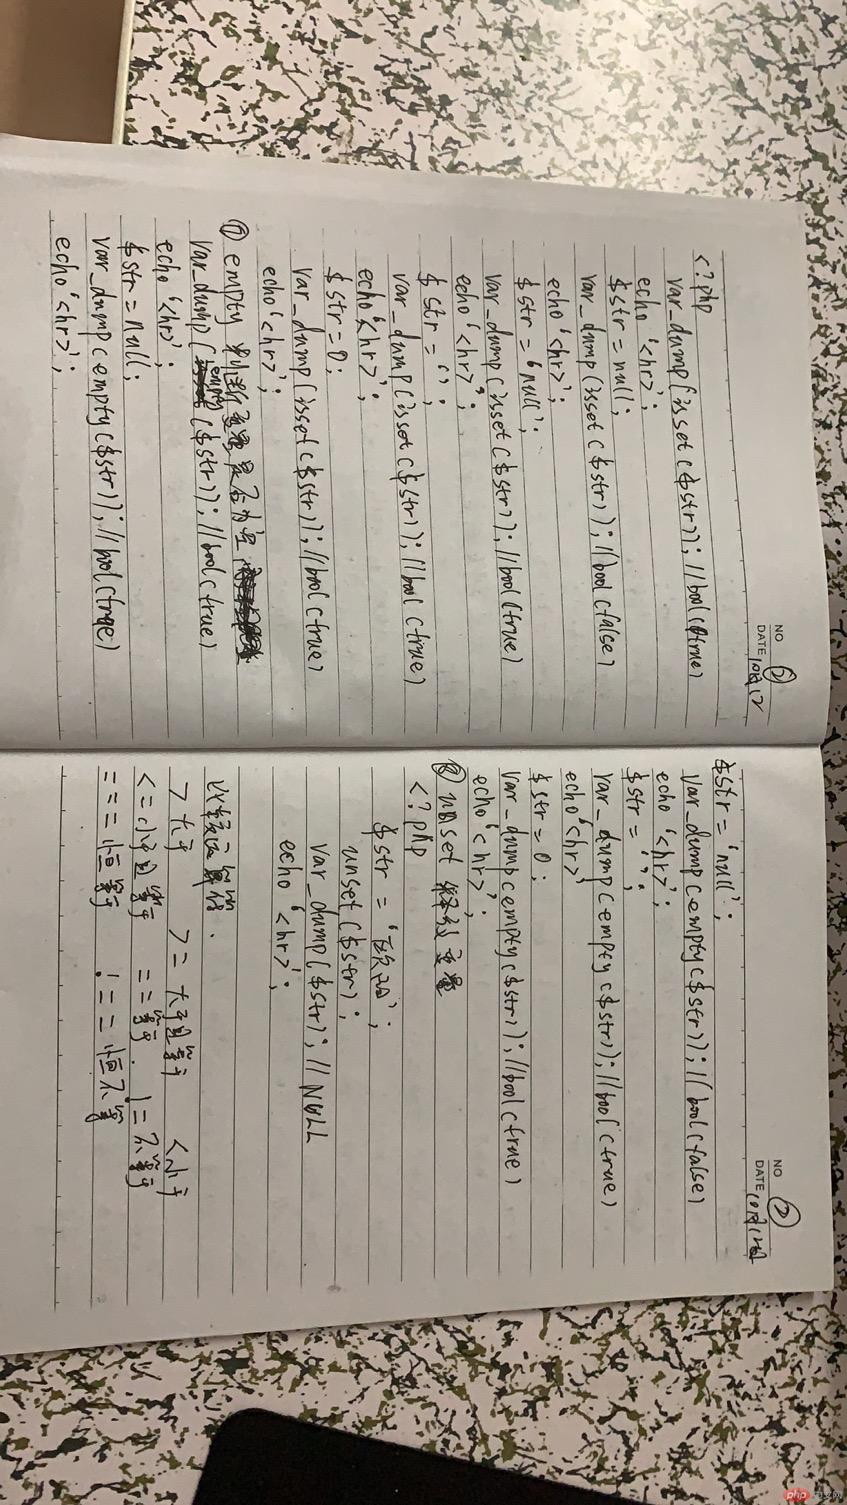 NO ⑥
DATE
<?php
var_dump(isset($str)); //bool(true)
echo '<hr>';
$str = null;
var_dump(isset($str)); //bool(false)
echo '<hr>';
$str = 'null';
var_dump(isset($str)); //bool(true)
echo '<hr>';
$str = '';
var_dump(isset($str)); //bool(true)
echo '<hr>';
$str = 0;
var_dump(isset($str)); //bool(true)
echo '<hr>';
empty 判断变量是否为空
var_dump(empty($str)); //bool(true)
echo '<hr>';
$str = null;
var_dump(empty($str)); //bool(true)
echo '<hr>';
NO ⑦
DATE
$str = 'null';
var_dump(empty($str)); //bool(false)
echo '<hr>';
$str = '';
var_dump(empty($str)); //bool(true)
echo '<hr>'
$str = 0;
var_dump(empty($str)); //bool(true)
echo '<hr>';
⑧ unset 变量
<?php
$str = '';
unset($str);
var_dump($str); //NULL
echo '<hr>';
比较运算符.
> 大于 >= 大于且等于 < 小于
<= 小于且等于 == 等于. != 不等于
=== 恒等于 !== 恒不等
php 中文网